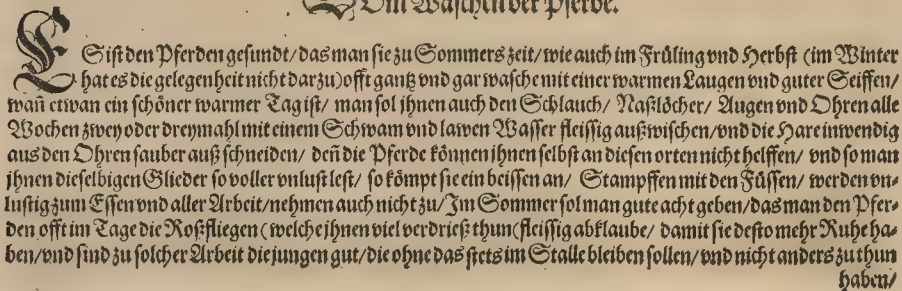 Vom Waschen der Pferde.
ES ist den Pferden gesundt/ das man sie zu Sommers zeit/ wie auch im Früling vnd Herbst (im Winter
hat es die gelegenheit nicht darzu) offt gantz vnd gar wasche mit einer warmen Laugen vnd guter Seiffen/
wañ etwan ein schöner warmer Tag ist/ man sol jhnen auch den Schlauch/ Naßlöcher/ Augen vnd Ohren alle
Wochen zwey oder dreymahl mit einem Schwam vnd lawen Wasser fleissig außwischen/ vnd die Hare inwendig
aus den Ohren sauber auß schneiden/ deñ die Pferde können jhnen selbst an diesen orten nicht helffen/ vnd so man
jhnen dieselbigen Glieder so voller vnlust lest/ so kömpt sie ein beissen an/ Stampffen mit den Füssen/ werden vn-
lustig zum Essen vnd aller Arbeit/ nehmen auch nicht zu/ Im Sommer sol man gute acht geben/ das man den Pfer-
den offt im Tage die Roßfliegen (welche jhnen viel verdrieß thun (fleissig abklaube/ damit sie desto mehr Ruhe ha-
ben/ vnd sind zu solcher Arbeit die jungen gut/ die ohne das stets im Stalle bleiben sollen/ vnd nicht anders zu thun
haben/